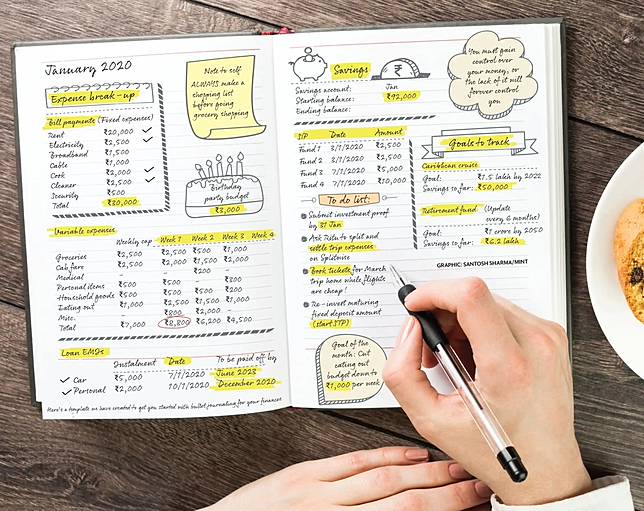 January 2020
Expense break-up
Bill payments (Fixed expenses)
Rent ₹20,000
Electricity ₹2,500
Broadband ₹1,500
Cable ₹1,000
Cook ₹2,000
Cleaner ₹2,500
Security ₹500
Total ₹30,000
Note to self
ALWAYS make a
shopping list
before going
grocery shopping
Birthday
party budget
₹3,000
Variable expenses
Weekly cap Week 1 Week 2 Week 3 Week 4
Groceries ₹2,500 ₹2,500 ₹500 ₹1,000
Cab fare ₹2,500 ₹2,000 ₹1,500 ₹2,000
Medical - - ₹200 -
Personal items ₹500 ₹500 - ₹300
Household goods ₹500 ₹500 ₹500 ₹200
Eating out ₹1,000 ₹2,500 ₹1,500 ₹1,000
Misc. - ₹800 ₹2,000 -
Total ₹7,000 ₹8,800 ₹6,200 ₹4,500
Loan EMIs
Instalment Date To be paid off by
Car ₹5,000 7/1/2020 June 2023
Personal ₹2,000 10/1/2020 December 2020
Here's a template we have created to get you started with bullet journaling for your finances
Savings
₹
Jan
Savings account:
Starting balance: ₹92,000
Ending balance:
You must gain
control over
your money, or
the lack of it will
forever control
you
SIP Date Amount
Fund 1 3/1/2020 ₹2,500
Fund 2 3/1/2020 ₹2,500
Fund 3 7/1/2020 ₹5,000
Fund 4 7/1/2020 ₹10,000
Goals to track
Caribbean cruise
Goal: ₹1.5 lakh by 2022
Savings so far: ₹50,000
Retirement fund (Update
every 6 months)
Goal: ₹1 crore by 2050
Savings so far: ₹6.2 lakh
GRAPHIC: SANTOSH SHARMA/MINT
To do list:
Submit investment proof
by 31 Jan
Ask Ritu to split and
settle trip expenses
on Splitwise
Book tickets for March
trip home while flights
are cheap!
Re-invest maturing
fixed deposit amount
(start STP)
Goal of the
month: Cut
eating out
budget down to
₹1,000 per week